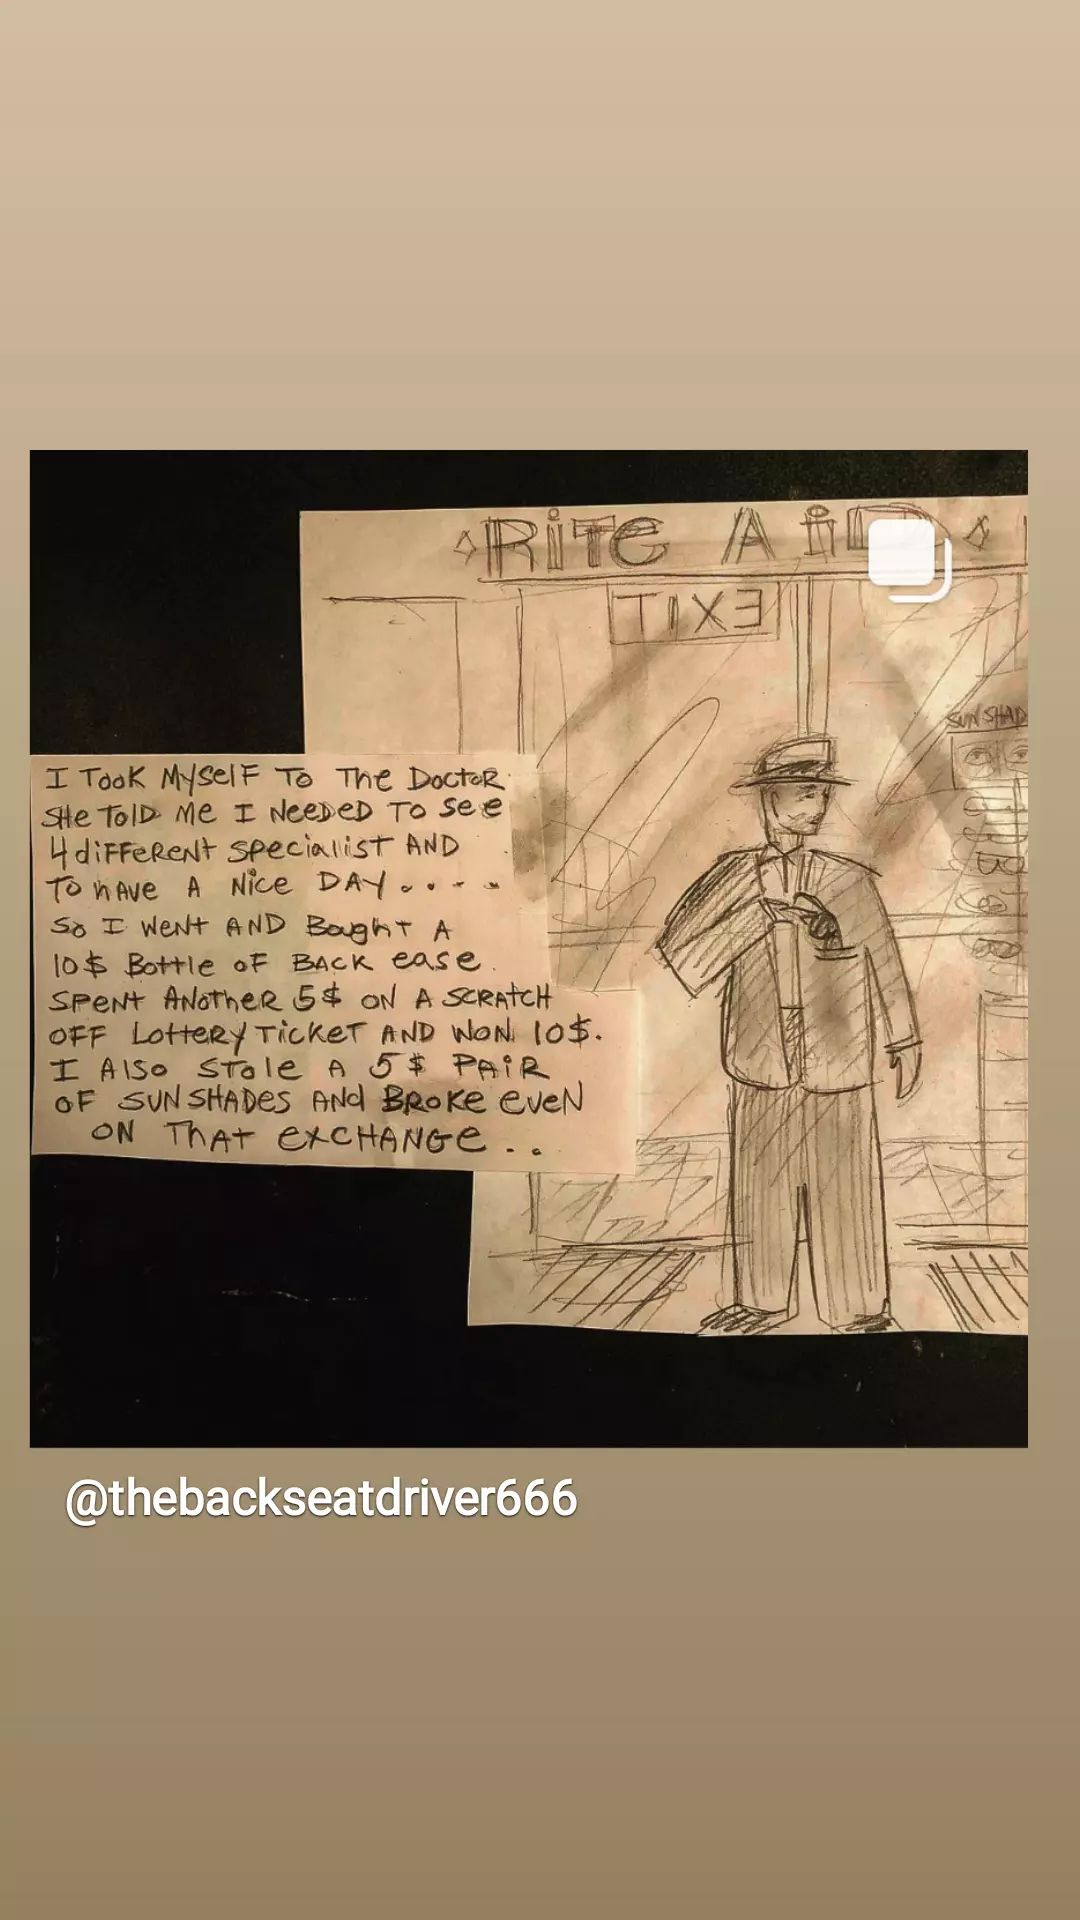 RiTE AiD
TIXE
SUN SHAD
I TOOK MYSELF TO THE DOCTOR
SHE TOLD ME I NEEDED TO SEE
4 diFFERENT SPECIALIST AND
TO HAVE A NICE DAY.....
SO I WENT AND Bought A
10$ BOTTLE OF BACK EASE.
SPENT ANOTHER 5$ ON A SCRATCH
OFF LOTTERY TICKET AND WON 10$.
I ALSO STOLE A 5$ PAIR
OF SUNSHADES AND BROKE EVEN
ON THAT EXCHANGE..
@thebackseatdriver666